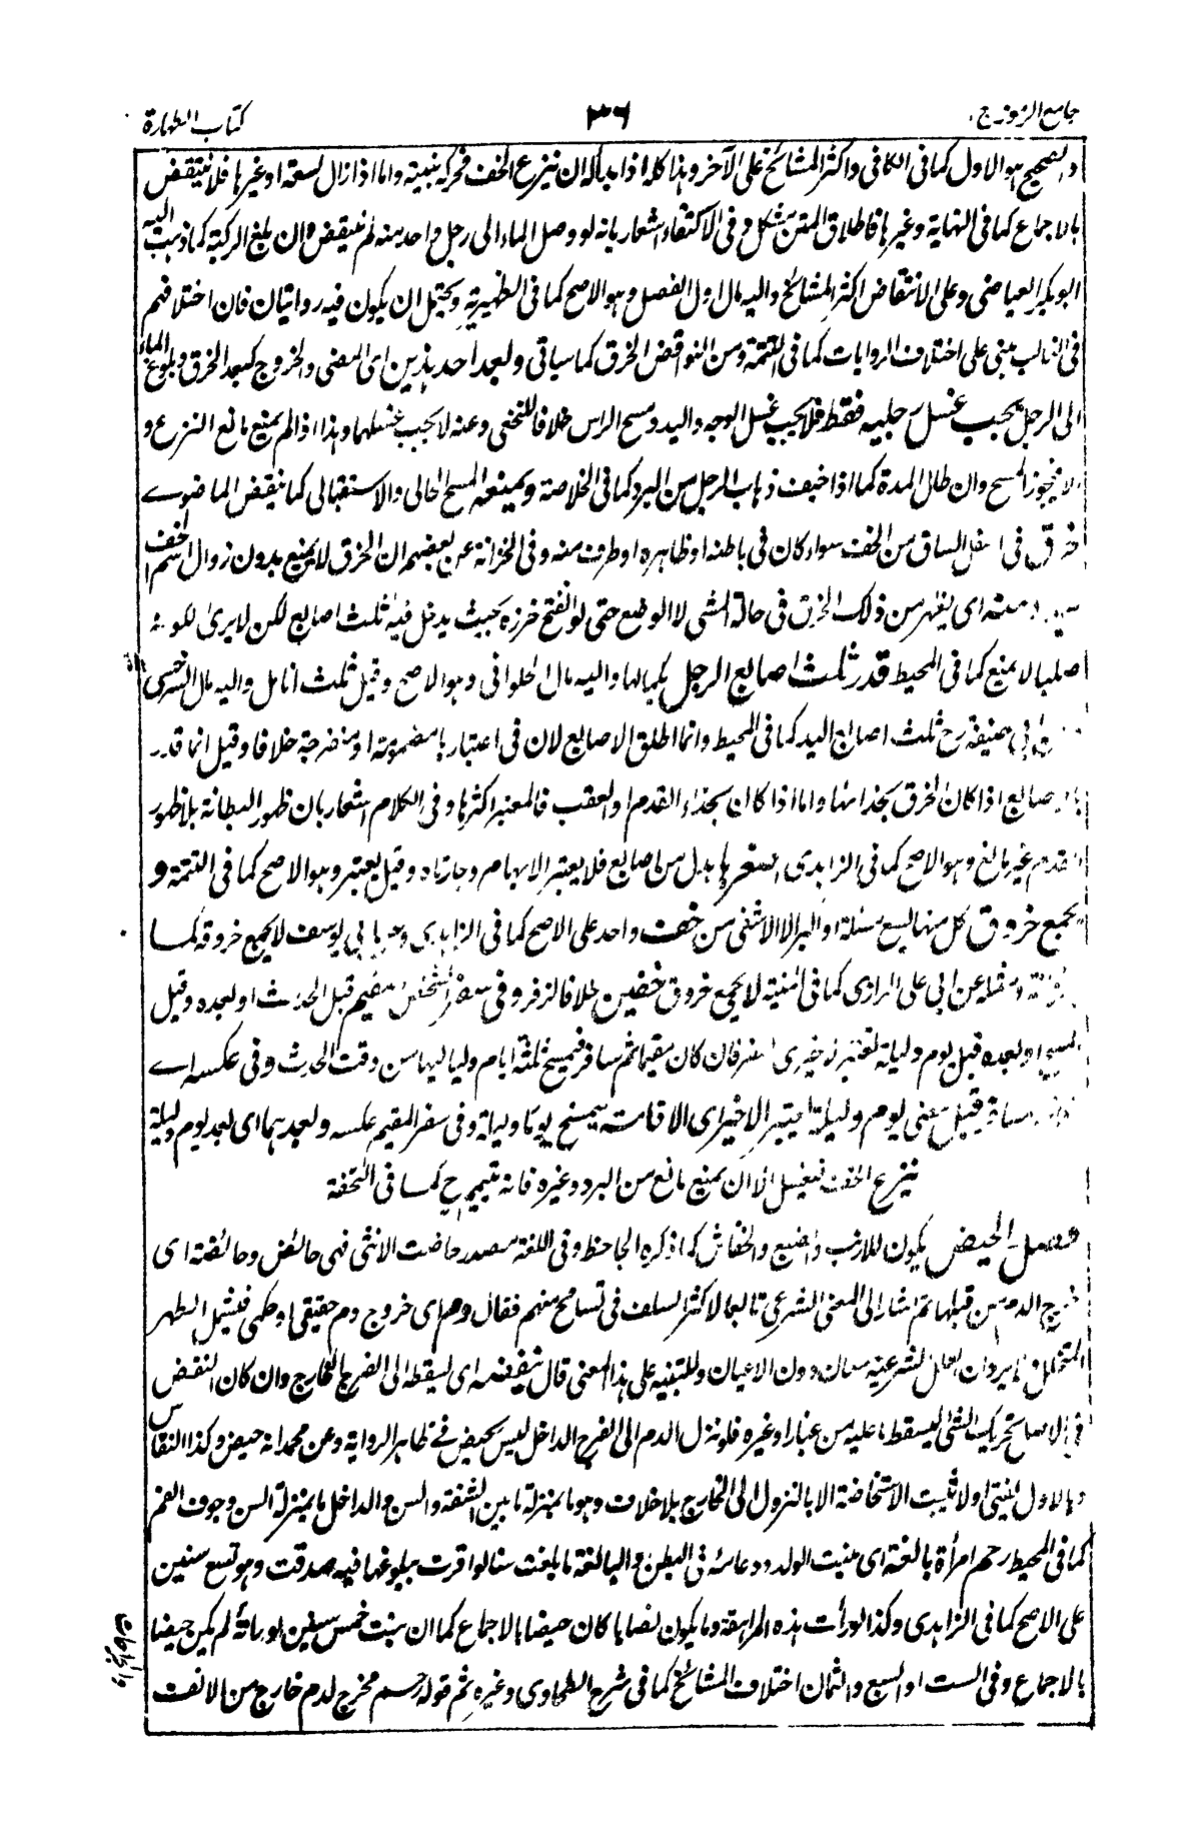 جامع الرموز ج
٣٦
كتاب الطهارة
والصحيح هو الاول كما فى الكافى واكثر المشائخ على الآخر وهذا كله اذا بدا له ان ينزع الخف فحركه بنيته واما اذا زال لسعته او غيرها فلا ينتقض
بالاجماع كما فى النهاية وغيرها فاطلاق المتن مشكل وفى الاكتفاء اشعار بانه لو وصل الماء الى رجل واحد منه لم ينتقض وان بلغ الركبة كما ذهب اليه
ابو بكر العياضى وعلى الانتقاض اكثر المشائخ واليه مال اول الفصل وهو الاصح كما فى الظهيرية ويحتمل ان يكون فيه روايتان فان اختلافهم
فى الغالب مبنى على اختلاف الروايات كما فى التتمة ومن النواقض الخرق كما سياتى وبعد احد هذين اى المضى والخروج كبعد الخرق وبلوغ الماء
الى الرجل يجب غسل رجليه فقط فلا يجب غسل الوجه واليد ومسح الراس خلافا للنخعى وعنه لا يجب غسلهما وهذا اذا لم يمنع مانع النزع و
الا فيجوز المسح وان طال المدة كما اذا خيف ذهاب الرجل من البرد كما فى الخلاصة ويمنعه المسح الحالى والاستقبالى كما ينقض الماضوى
خرق فى اسفل الساق من الخف سواء كان فى باطنه او ظاهره او طرف منه وفى الخزانة عن بعضهم ان الخرق لا يمنع بدون زوال اسم الخف
يبدو منه اى يظهر من ذلك الخرق فى حالة المشى لا الوضع حتى لو انفتح خرزه بحيث يدخل فيه ثلث اصابع لكن لا يرى لكونه
صلبا لا يمنع كما فى المحيط قدر ثلث اصابع الرجل بكمالها واليه مال الحلوانى وهو الاصح وقيل ثلث انامل واليه مال السرخسى
ابى حنيفة رح ثلث اصابع اليد كما فى المحيط وانما اطلق الاصابع لان فى اعتبارها مضمومة او منفرجة خلافا وقيل انما قدر
بالاصابع اذا كان الخرق بحذائها واما اذا كان بحذاء القدم او العقب فالمعتبر اكثرها وفى الكلام اشعار بان ظهور البطانة بلا ظهور
القدم غير مانع وهو الاصح كما فى الزاهدى اصغرها بدل من اصابع فلا يعتبر الابهام وجارتاه وقيل يعتبر وهو الاصح كما فى التتمة و
يجمع خروق كل منها يسع مسلة او اكبر الا الاشفى من خف واحد على الاصح كما فى الزاهدى وعن ابى يوسف لا يجمع خروقه كما
عن ابى على الرازى كما فى المنية لا يجمع خروق خفين خلافا لزفر وفى سفر مقيم قبل الحدث او بعده وقيل
المسح او بعده قبل يوم وليلة يعتبر الاخير اى السفر فان كان مقيما ثم سافر فيمسح ثلثة ايام ولياليها من وقت الحدث وفى عكسه اى
قبل مضى يوم وليلة يعتبر الاخير اى الاقامة فيمسح يوما وليلة وفى سفر المقيم عكسه وبعدهما اى بعد يوم وليلة
ينزع الخف فيغسل الا ان يمنع مانع من البرد وغيره فانه يتيمم ح كما فى التحفة
فصل الحيض يكون للارنب والضبع والخفاش كما ذكره الجاحظ وفى اللغة مصدر حاضت الانثى فهى حائض وحائضة اى
خرج الدم من قبلها ثم اشار الى المعنى الشرعى تابعا لاكثر السلف فى تسامح منهم فقال دم اى خروج دم حقيقى او حكمى فيشمل الطهر
المتخلل معان دون الاعيان وللتنبيه على هذا المعنى قال ينفضه اى يسقطه الى الفرج الخارج وان كان النفض
فى الاصل تحريك الشئ ليسقط ما عليه من غبار او غيره فلو نزل الدم الى الفرج الداخل ليس بحيض فى ظاهر الرواية وعن محمد انه حيض وكذا النفاس
وبالاول يفتى ولا تثبت الاستحاضة الا بالنزول الى الخارج بلا خلاف وهو ما بمنزلة ما بين الشفة والسن والداخل ما بمنزلة السن وجوف الفم
كما فى المحيط رحم امرأة بالغة اى منبت الولد ووعائه فى البطن والبالغة ما بلغت سنا لو اقرت ببلوغها فيه صدقت وهو تسع سنين
على الاصح كما فى الزاهدى وكذا لو رأت هذه المراهقة وما يكون نصابا كان حيضا بالاجماع كما ان بنت خمس سنين لو رأته لم يكن حيضا
بالاجماع وفى الست او السبع والثمان اختلاف المشائخ كما فى شرح الطحاوى وغيره ثم قوله رحم مخرج لدم خارج من الانف